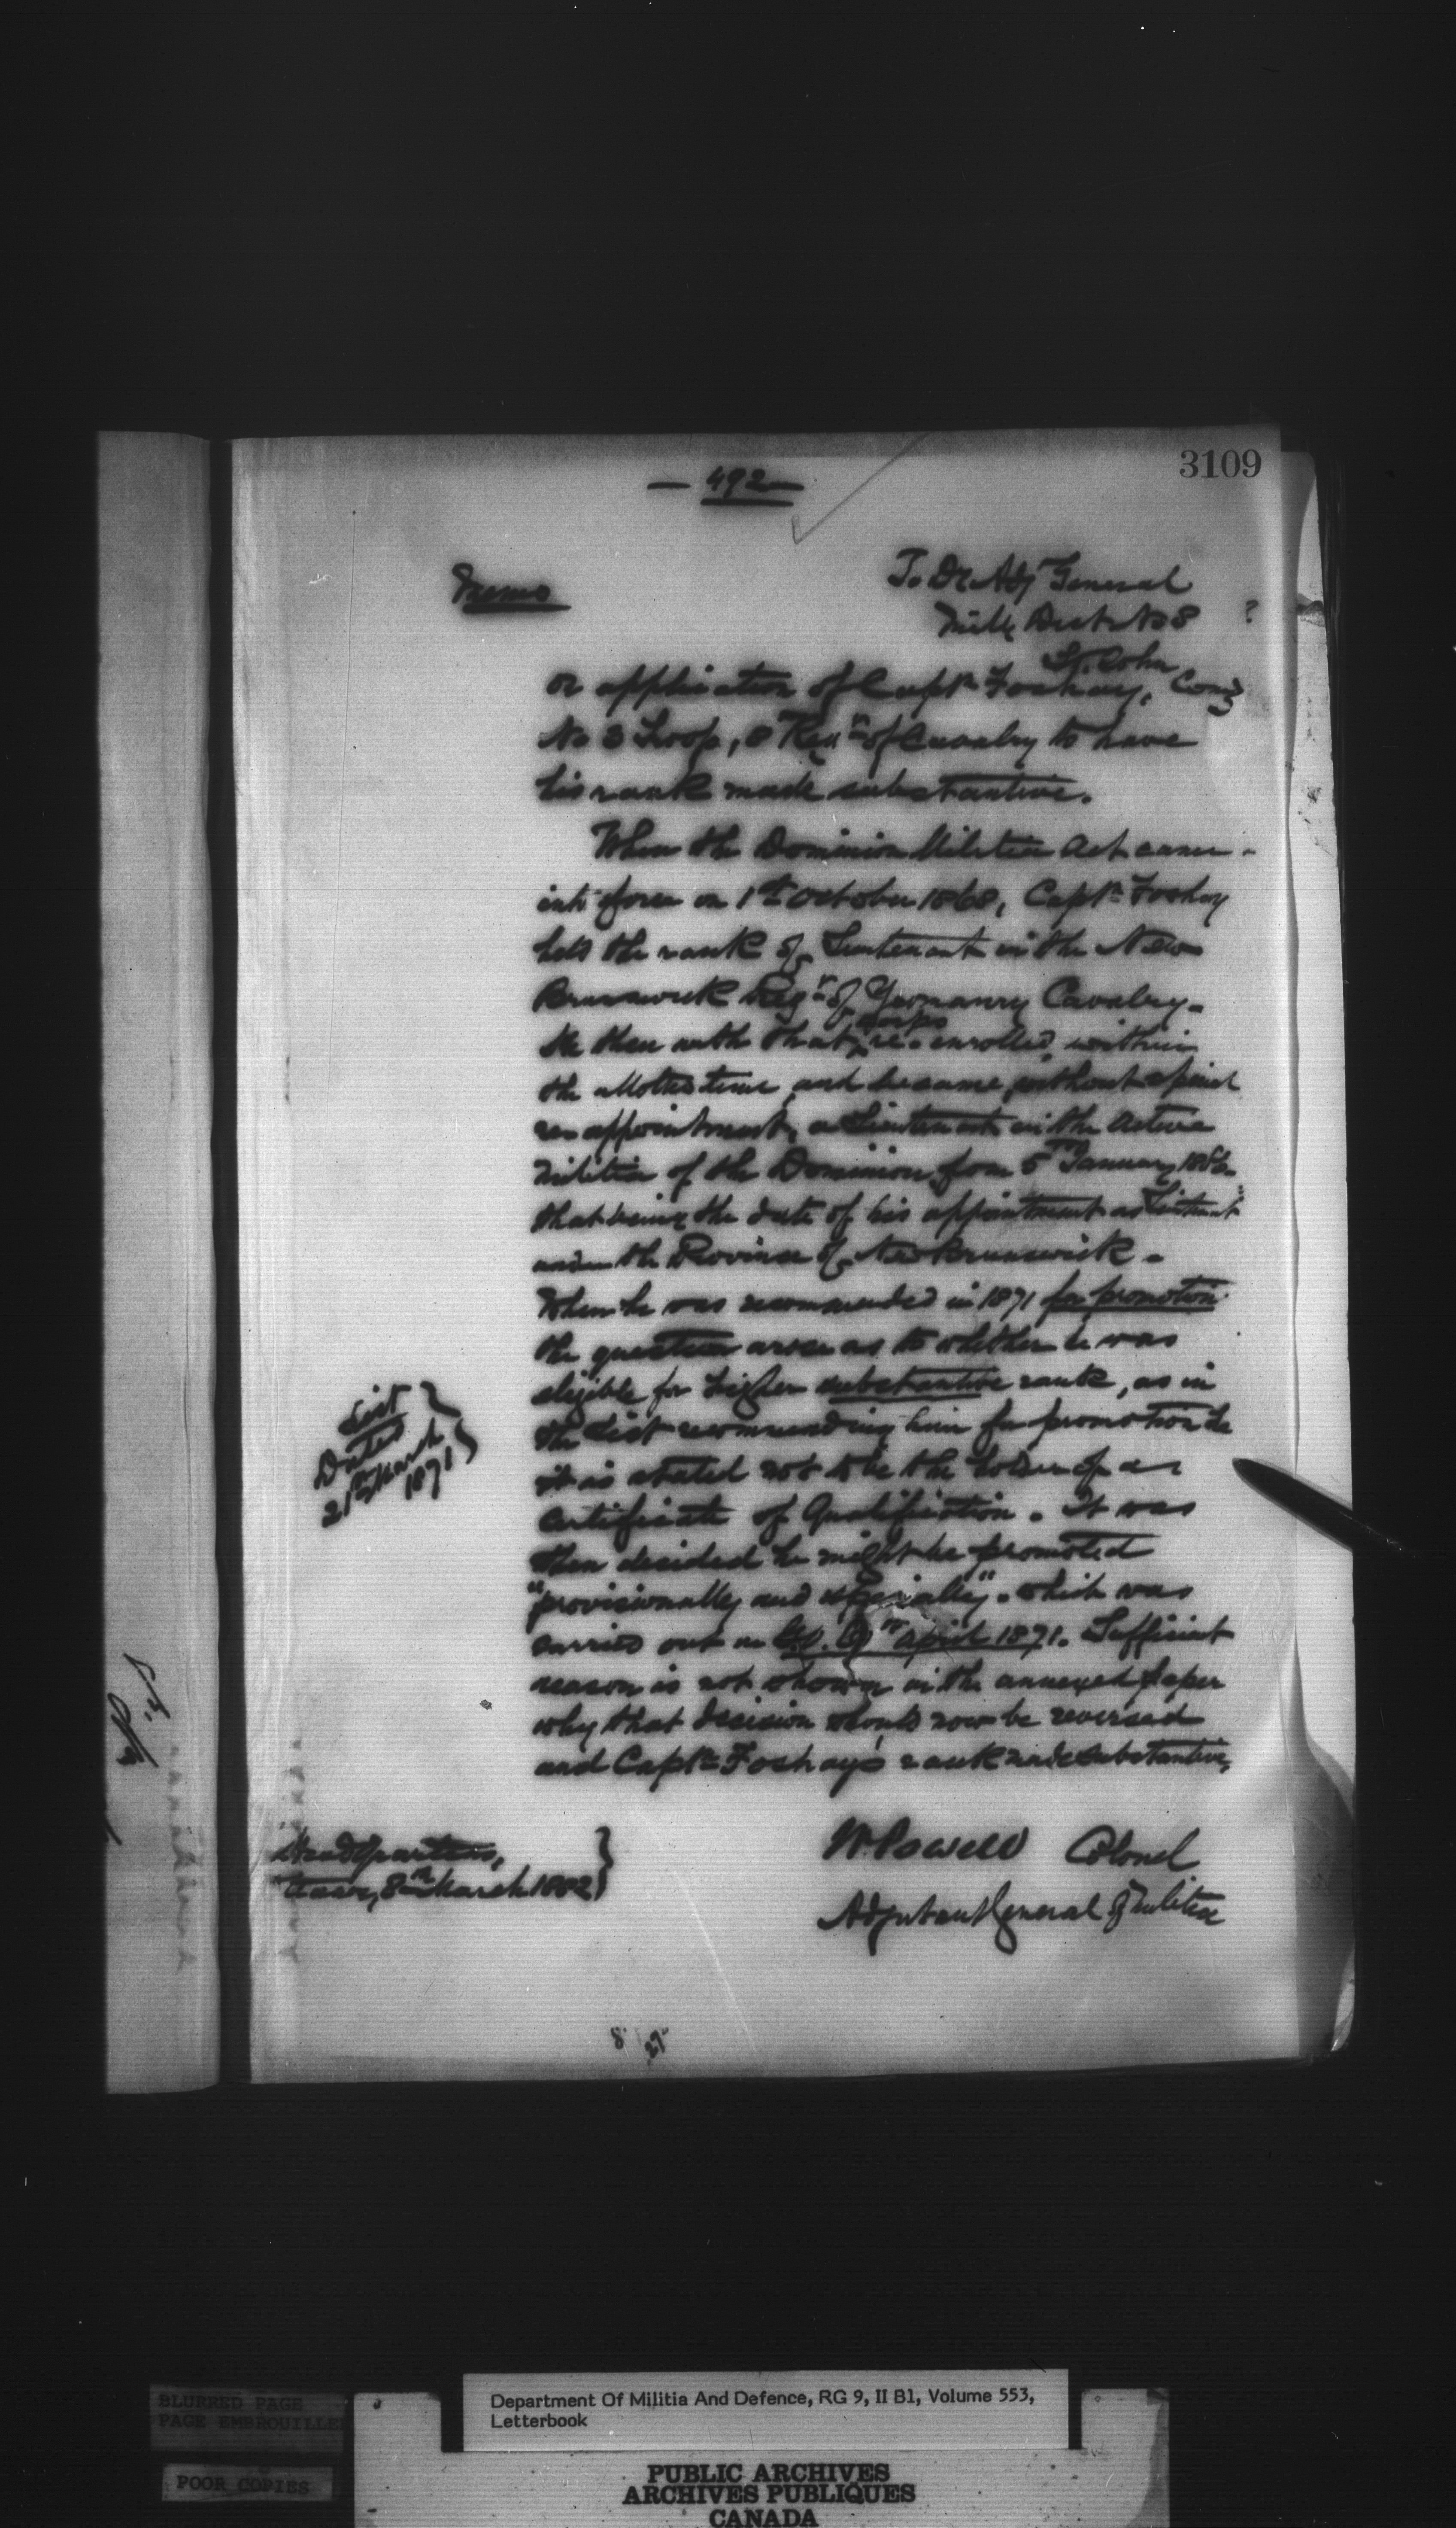 3109
— 492 —
Memo
To Dy Adjt General
Mil: Dist No 8
St. John
on application of Captn Foshay, Comg
No 3 Troop, 8 Regt of Cavalry to have
his rank made substantive.
When the Dominion Militia Act came
into force on 1st October 1868, Captn Foshay
held the rank of Lieutenant in the New
Brunswick Regt of Yeomanry Cavalry.
He then with that corps re-enrolled, within
the allotted time, and became, without special
re-appointment, a Lieutenant in the Active
Militia of the Dominion from 5th January
that being the date of his appointment as Lieutenant
under the Province of New Brunswick.
When he was recommended in 1871 for promotion
the question arose as to whether he was
eligible for higher substantive rank, as in
the List recommending him for promotion he
it is stated not to be the holder of a
Certificate of Qualification. It was
then decided he might be promoted
"provisionally and specially". which was
carried out in G.O. April 1871. Sufficient
reason is not shown in the annexed paper
why that decision should now be reversed
and Captn Foshay's rank made substantive,
List
Dated
21st March
1871
W. Powell Colonel
Adjutant General of Militia
Headquarters,
Ottawa, 8th March 1882
8 27
BLURRED PAGE
PAGE EMBROUILLEE
POOR COPIES
Department Of Militia And Defence, RG 9, II B1, Volume 553,
Letterbook
PUBLIC ARCHIVES
ARCHIVES PUBLIQUES
CANADA